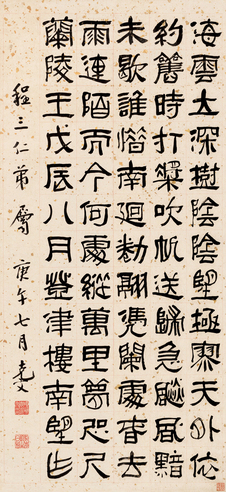 海雲大深樹陰陰望極寥天外依
約舊時打槳吹帆送歸急風黯
未歇誰惜南迴勌翮凭闌處春去
雨連陌而今何處縱萬里夢咫尺
蘭陵王戊辰八月登津樓南望
三仁弟屬 庚午七月